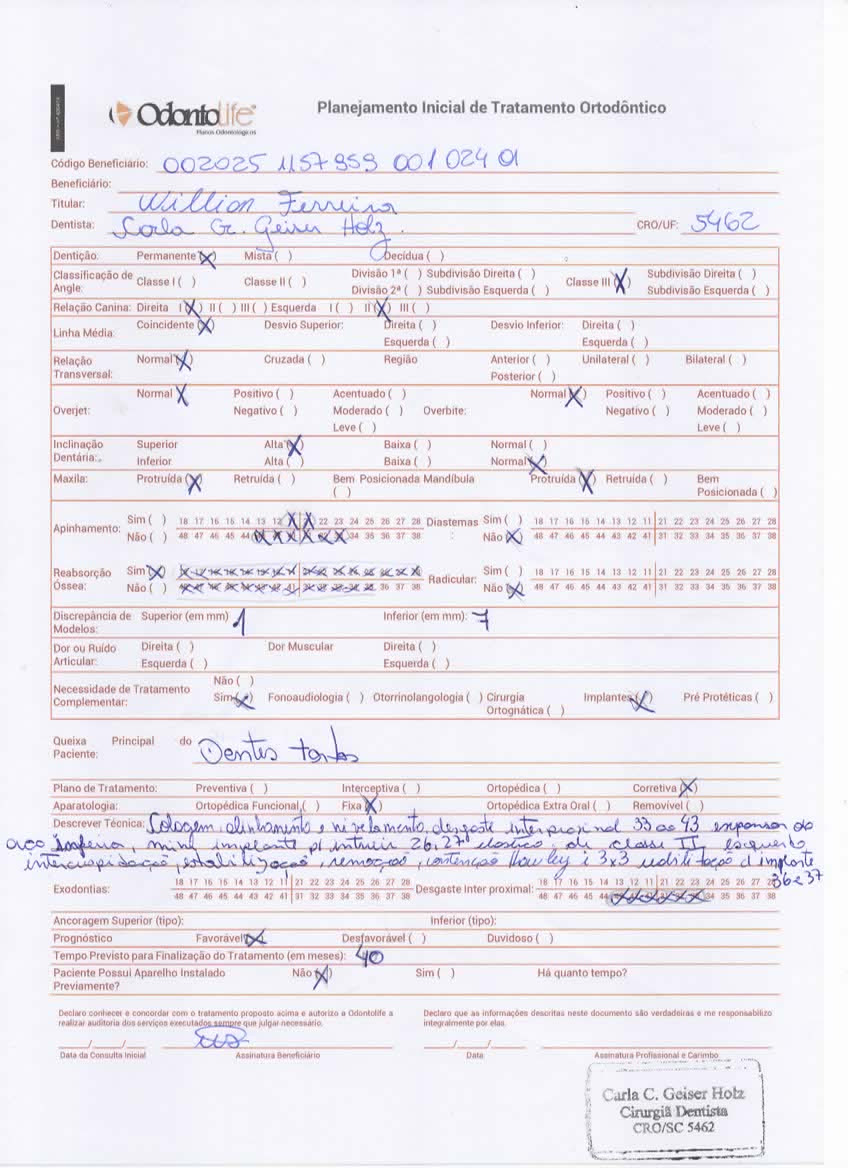 OdontoLife
Planos Odontológicos
Planejamento Inicial de Tratamento Ortodôntico
Código Beneficiário: 002025 1157959 001 024 01
Beneficiário:
Titular: Willion Ferreira
Dentista: Carla C. Geiser Holz. CRO/UF: 5462
Dentição: Permanente (X) Mista ( ) Decídua ( )
Classificação de Angle: Classe I ( ) Classe II ( ) Divisão 1ª ( ) Subdivisão Direita ( ) Classe III (X) Subdivisão Direita ( )
Divisão 2ª ( ) Subdivisão Esquerda ( ) Subdivisão Esquerda ( )
Relação Canina: Direita I (X) II ( ) III ( ) Esquerda I ( ) II (X) III ( )
Linha Média: Coincidente (X) Desvio Superior: Direita ( ) Desvio Inferior: Direita ( )
Esquerda ( ) Esquerda ( )
Relação Transversal: Normal (X) Cruzada ( ) Região Anterior ( ) Unilateral ( ) Bilateral ( )
Posterior ( )
Overjet: Normal X Positivo ( ) Acentuado ( ) Overbite: Normal (X) Positivo ( ) Acentuado ( )
Negativo ( ) Moderado ( ) Negativo ( ) Moderado ( )
Leve ( ) Leve ( )
Inclinação Dentária: Superior Alta (X) Baixa ( ) Normal ( )
Inferior Alta ( ) Baixa ( ) Normal (X)
Maxila: Protruída (X) Retruída ( ) Bem Posicionada ( ) Mandíbula Protruída (X) Retruída ( ) Bem Posicionada ( )
Apinhamento: Sim ( ) 18 17 16 15 14 13 12 X X 22 23 24 25 26 27 28 Diastemas : Sim ( ) 18 17 16 15 14 13 12 11 21 22 23 24 25 26 27 28
Não ( ) 48 47 46 45 44 X X X X X X 34 35 36 37 38 Não (X) 48 47 46 45 44 43 42 41 31 32 33 34 35 36 37 38
Reabsorção Óssea: Sim (X) Radicular: Sim ( ) 18 17 16 15 14 13 12 11 21 22 23 24 25 26 27 28
Não ( ) 36 37 38 Não (X) 48 47 46 45 44 43 42 41 31 32 33 34 35 36 37 38
Discrepância de Modelos: Superior (em mm) 1 Inferior (em mm): 7
Dor ou Ruído Articular: Direita ( ) Dor Muscular Direita ( )
Esquerda ( ) Esquerda ( )
Necessidade de Tratamento Complementar: Não ( )
Sim (X) Fonoaudiologia ( ) Otorrinolangologia ( ) Cirurgia Ortognática ( ) Implantes (X) Pré Protéticas ( )
Queixa Principal do Paciente: Dentes tortos
Plano de Tratamento: Preventiva ( ) Interceptiva ( ) Ortopédica ( ) Corretiva (X)
Aparatologia: Ortopédica Funcional ( ) Fixa (X) Ortopédica Extra Oral ( ) Removível ( )
Descrever Técnica: Colagem, alinhamento e nivelamento, desgaste interproximal 33 ao 43 expansor do
arco inferior, mini implante p/ intruir 26,27 elastico, de classe II esquerdo
intercuspidação, estabilização, remoção, contenção Hawley e 3x3 reabilitação c/ implante
36 e 37
Exodontias: 18 17 16 15 14 13 12 11 21 22 23 24 25 26 27 28 Desgaste Inter proximal: 18 17 16 15 14 13 12 11 21 22 23 24 25 26 27 28
48 47 46 45 44 43 42 41 31 32 33 34 35 36 37 38 48 47 46 45 44 X X X X X X 34 35 36 37 38
Ancoragem Superior (tipo): Inferior (tipo):
Prognóstico Favorável (X) Desfavorável ( ) Duvidoso ( )
Tempo Previsto para Finalização do Tratamento (em meses): 40
Paciente Possui Aparelho Instalado Previamente? Não (X) Sim ( ) Há quanto tempo?
Declaro conhecer e concordar com o tratamento proposto acima e autorizo a Odontolife a Declaro que as informações descritas neste documento são verdadeiras e me responsabilizo
realizar auditoria dos serviços executados sempre que julgar necessário. integralmente por elas.
Data da Consulta Inicial Assinatura Beneficiário Data Assinatura Profissional e Carimbo
Carla C. Geiser Holz
Cirurgiã Dentista
CRO/SC 5462